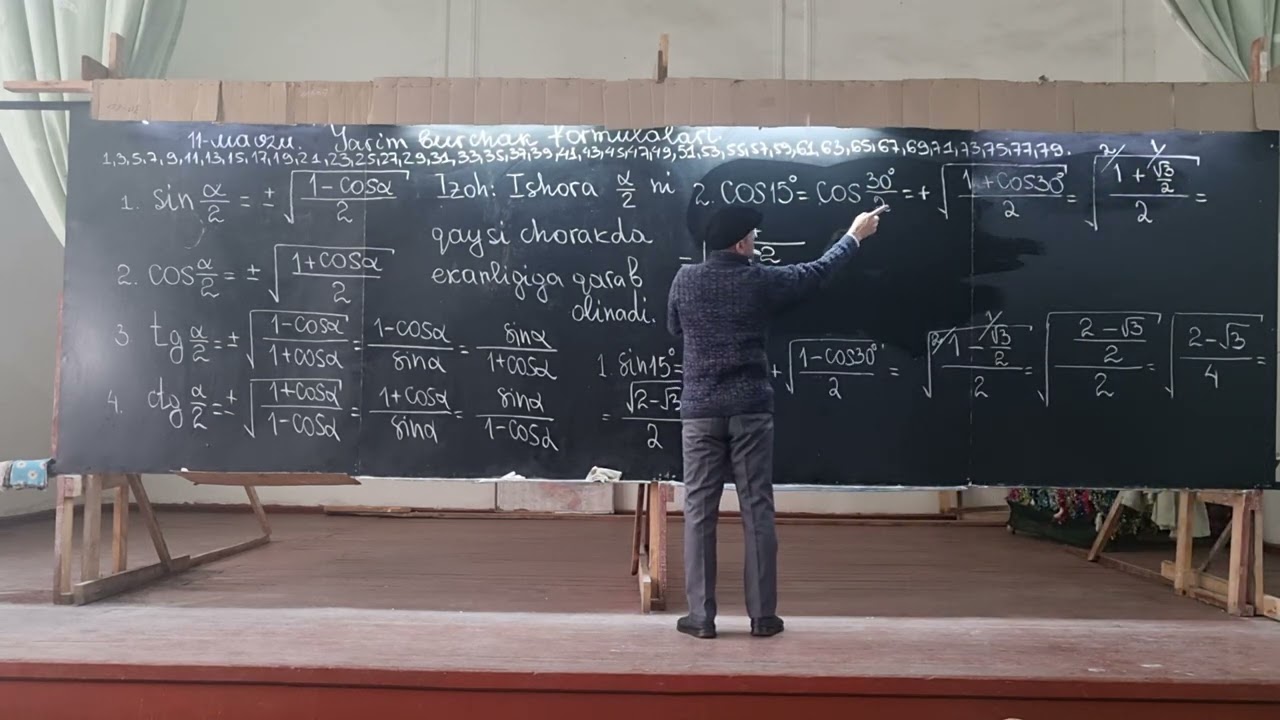 11-mavzu. Yarim burchak formulalari.
1,3,5,7,9,11,13,15,17,19,21,23,25,27,29,31,33,35,37,39,41,43,45,47,49,51,53,55,57,59,61,63,65,67,69,71,73,75,77,79.
1. sin α/2 = ± √((1-cosα)/2)
2. cos α/2 = ± √((1+cosα)/2)
3 tg α/2 = ± √((1-cosα)/(1+cosα)) = (1-cosα)/sinα = sinα/(1+cosα)
4. ctg α/2 = ± √((1+cosα)/(1-cosα)) = (1+cosα)/sinα = sinα/(1-cosα)
Izoh: Ishora α/2 ni
qaysi chorakda
ekanligiga qarab
olinadi.
2. cos15° = cos 30°/2 = + √((1+cos30°)/2) = √((1+√3/2)/2) =
1. sin15° = + √((1-cos30°)/2) = √((1-√3/2)/2) = √(((2-√3)/2)/2) = √((2-√3)/4) =
= √(2-√3)/2